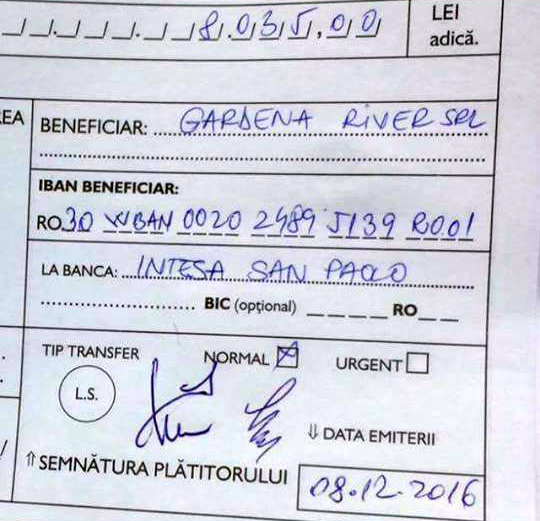 8.035,00
LEI
adică.
EA
BENEFICIAR: GARDENA RIVER SRL
IBAN BENEFICIAR:
RO30 WBAN 0020 2489 5139 R001
LA BANCA: INTESA SAN PAOLO
BIC (opţional) ____ RO__
TIP TRANSFER NORMAL URGENT
L.S.
⇓ DATA EMITERII
⇑ SEMNĂTURA PLĂTITORULUI
08.12.2016